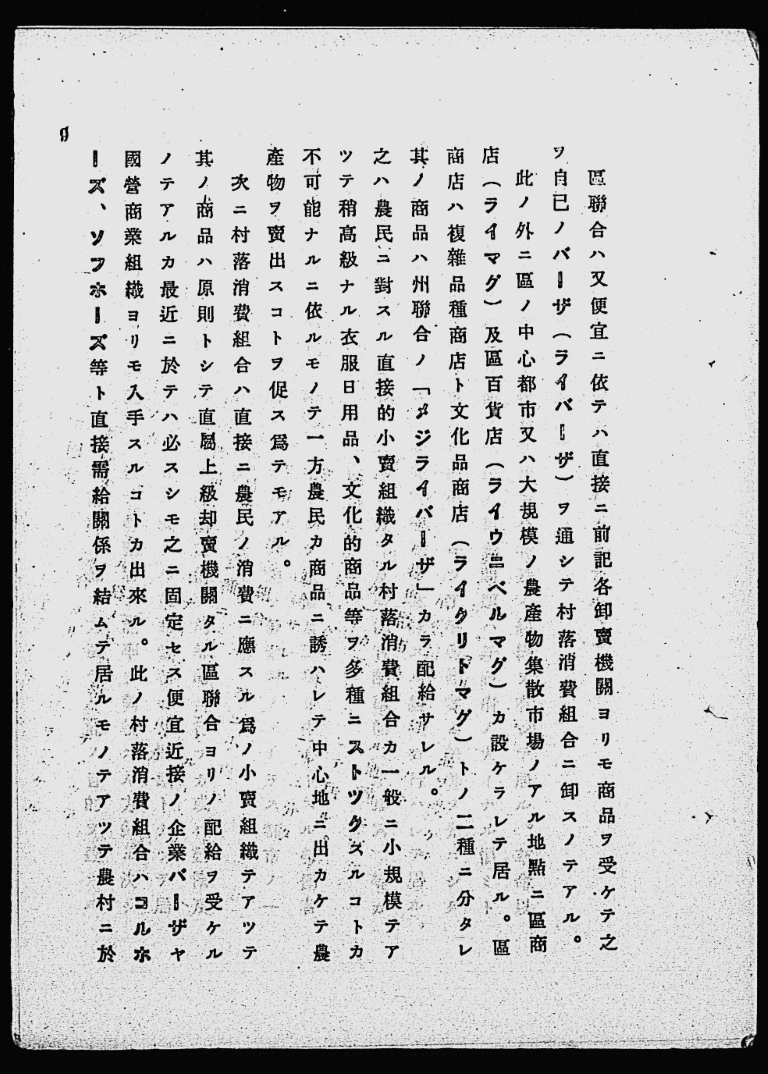 區聯合ハ又便宜ニ依テハ直接ニ前記各卸賣機關ヨリモ商品ヲ受ケテ之
ヲ自已ノバーザ（ライバーザ）ヲ通シテ村落消費組合ニ卸スノテアル。
此ノ外ニ區ノ中心都市又ハ大規模ノ農產物集散市場ノアル地點ニ區商
店（ライマグ）及區百貨店（ライウニベルマグ）カ設ケラレテ居ル。區
商店ハ複雜品種商店ト文化品商店（ライクリトマグ）トノ二種ニ分タレ
其ノ商品ハ州聯合ノ「メジライバーザ」カラ配給サレル。
之ハ農民ニ對スル直接的小賣組織タル村落消費組合カ一般ニ小規模テア
ツテ稍高級ナル衣服日用品、文化的商品等ヲ多種ニストツクスルコトカ
不可能ナルニ依ルモノテ一方農民カ商品ニ誘ハレテ中心地ニ出カケテ農
產物ヲ賣出スコトヲ促ス爲テモアル。
次ニ村落消費組合ハ直接ニ農民ノ消費ニ應スル爲ノ小賣組織テアツテ
其ノ商品ハ原則トシテ直屬上級却賣機關タル區聯合ヨリノ配給ヲ受ケル
ノテアルカ最近ニ於テハ必スシモ之ニ固定セス便宜近接ノ企業バーザヤ
國營商業組織ヨリモ入手スルコトカ出來ル。此ノ村落消費組合ハコルホ
ーズ、ソフホーズ等ト直接需給關係ヲ結ムテ居ルモノテアツテ農村ニ於